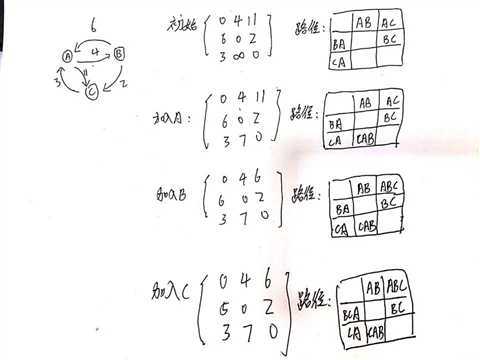 6
A 4 B
3 11 2
C
初始 0 4 11 路径: AB AC
6 0 2 BA BC
3 ∞ 0 CA
加入A: 0 4 11 路径: AB AC
6 0 2 BA BC
3 7 0 CA CAB
加入B 0 4 6 路径: AB ABC
6 0 2 BA BC
3 7 0 CA CAB
加入C 0 4 6 路径: AB ABC
5 0 2 BCA BC
3 7 0 CA CAB